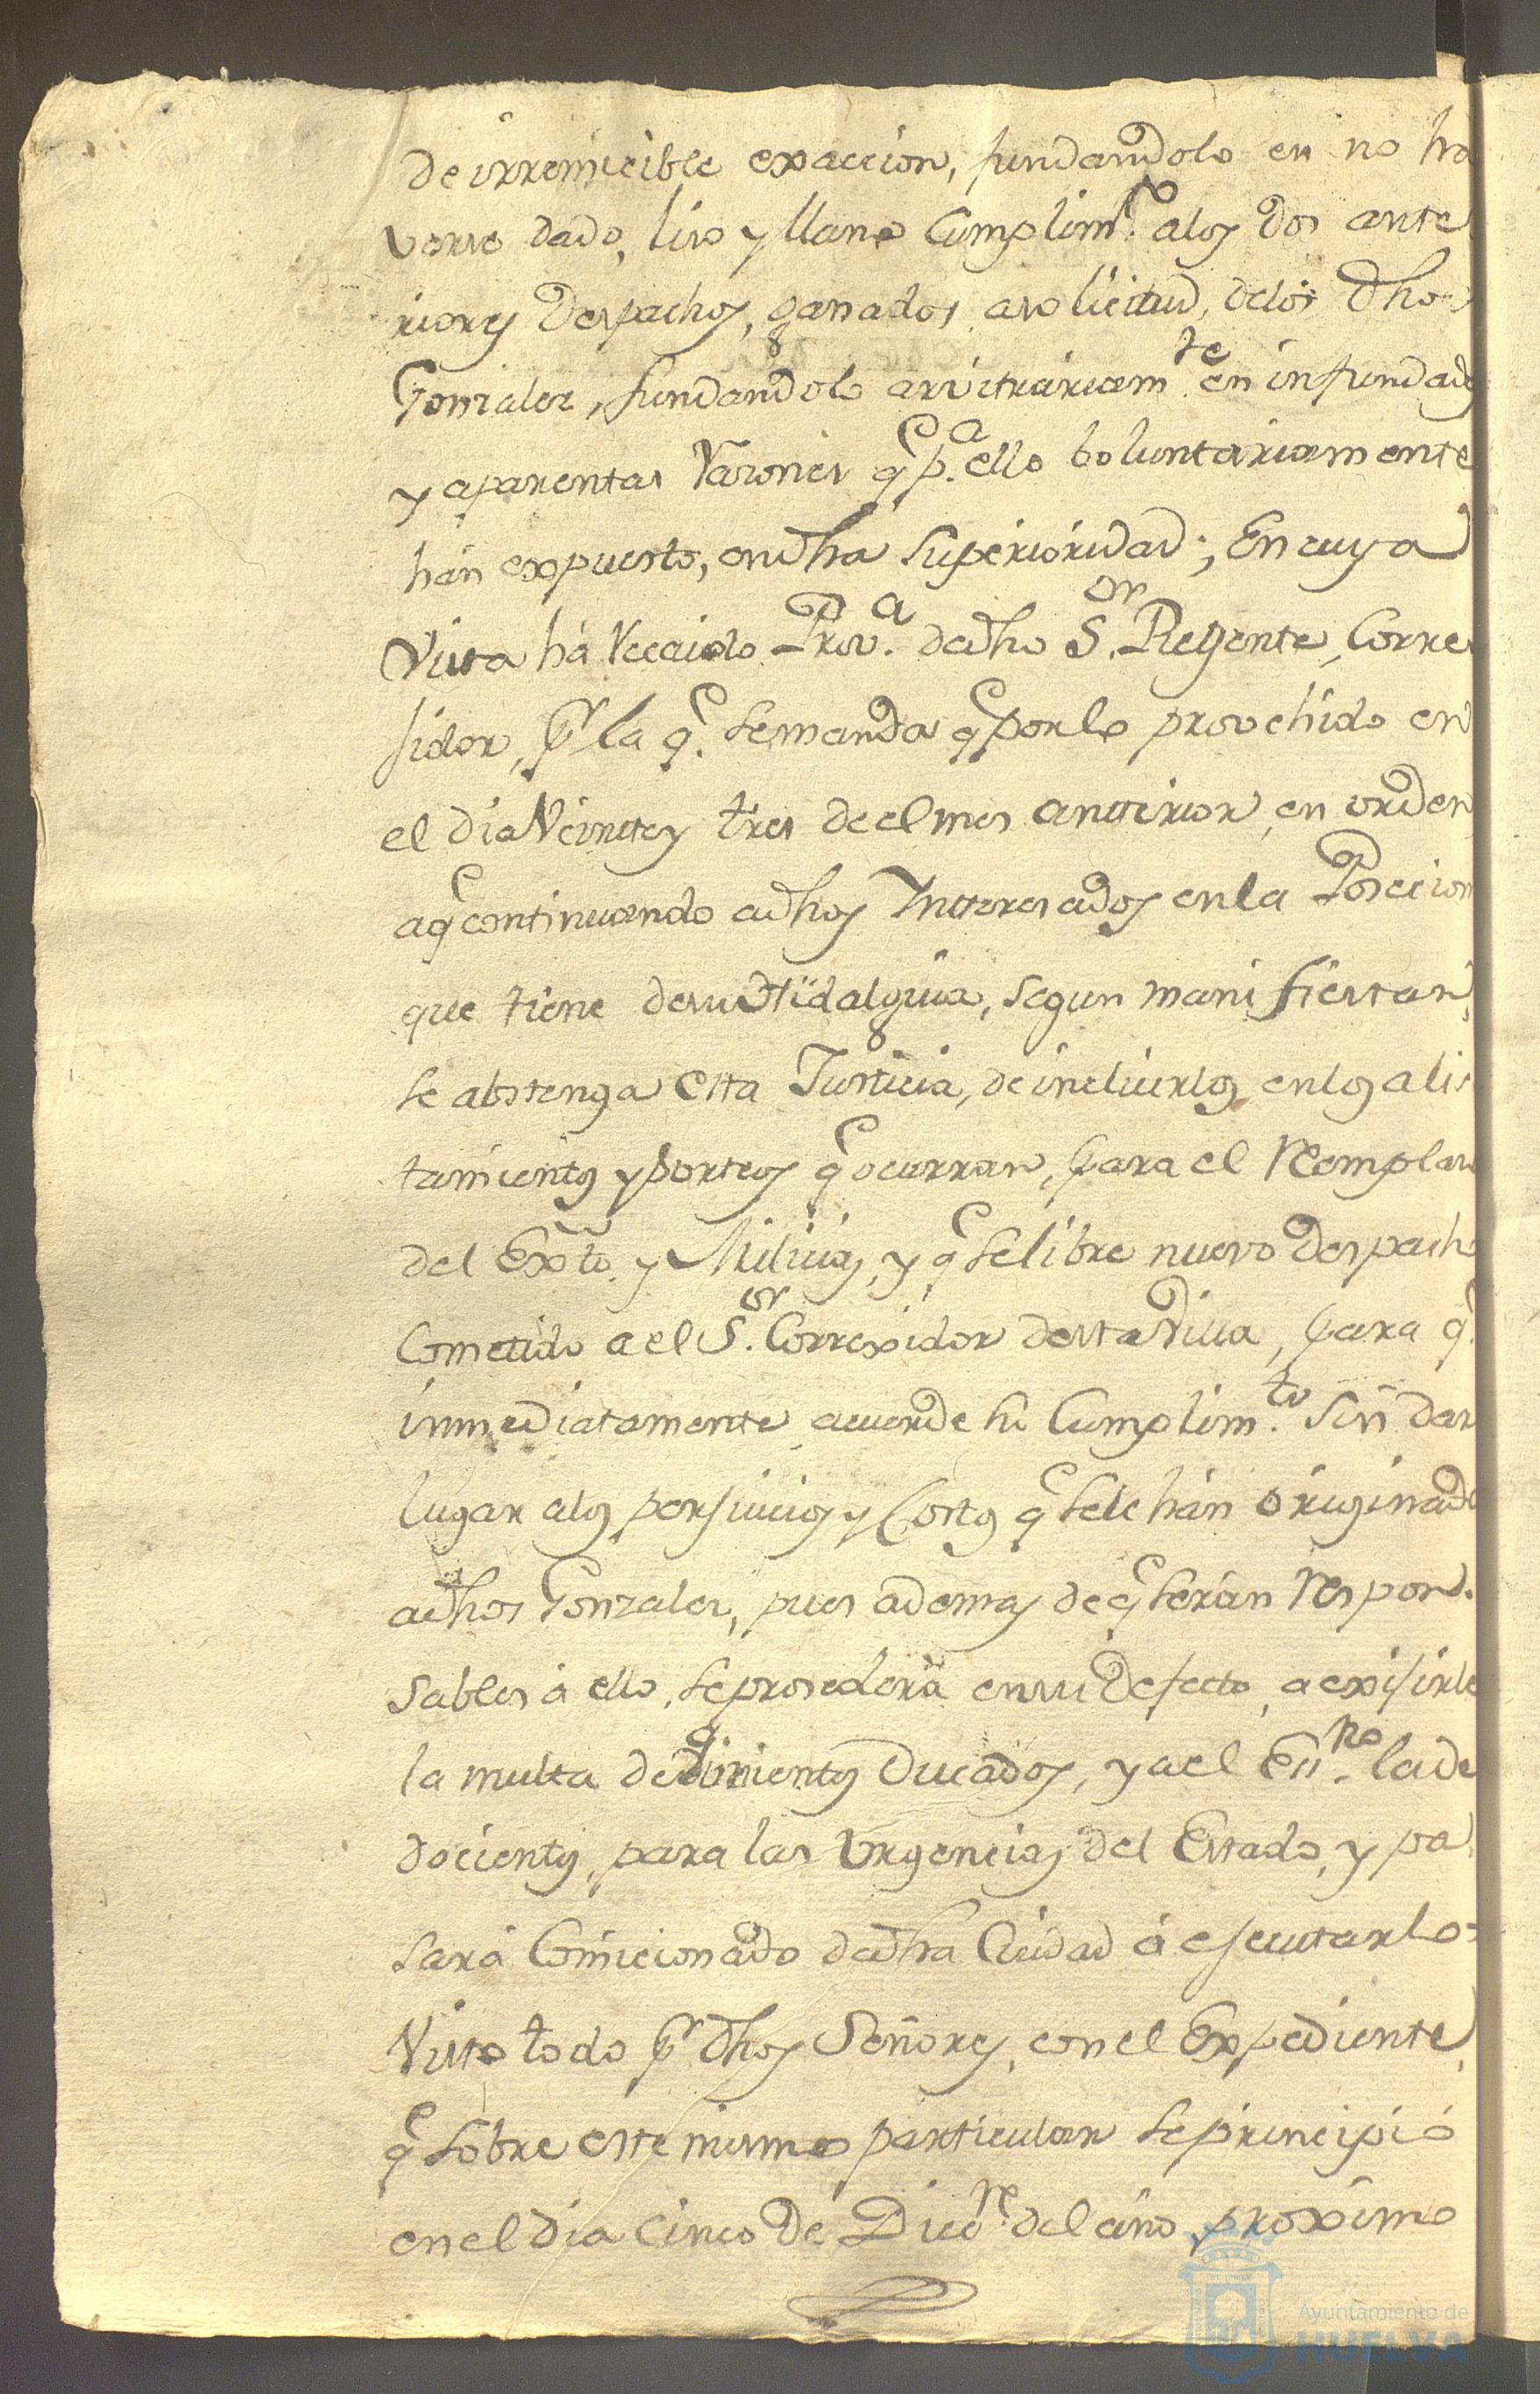 de irremicible exaccion, fundandolo en no ha
verse dado, liso y llano Cumplim.to alos dos ante
riores Despachos, ganados a solicitud, delos dhos
Gonzales, fundandolo arvitrariam.te en infundadas
y aparentas Razones q.e p.a ello boluntariamente
hán expuesto, en dha Superioridad; En cuya
Vista há Recaido Prov.a de dho S.or Regente, Corre
sidor, pr la q.e se manda q.e por lo provehido en
el dia Veinte y tres de el mes anterior, en orden
a q.e continuando a dhos Interesados en la Posecion
que tiene de su Hidalguia, segun manifiestan,
se abstenga esta Justicia, de incluirlos en los alis
tamientos y sorteos q.e ocurran, para el Remplaso
del Exto. y Milicias, y q.e se libre nuevo Despacho
Cometido a el S.or Correxidor desta Villa, para q.e
inmediatamente acuerde su Cumplim.to sin dar
lugar alos persuicios y Costos q.e se le hán originado
a dhos Gonzales, pues ademas de q.e serán Respon.
sables á ello, se prosederá en su defecto, a exisirle
la multa de Quinientos Ducados, y a el Es.no la de
docientos, para las Urgencias del Estado, y pa
sará Comicionado de dha Ciudad á esecutarlo:
Visto todo pr dhos Señores, con el Expediente,
q.e sobre este mismo particular se principió
en el dia Cinco de Dic.re del año proximo
Ayuntamiento de
HUELVA